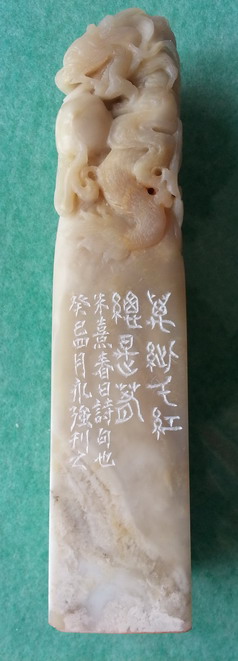 萬紫千紅
總是春
朱熹春日詩句也
癸巳四月永強刊之